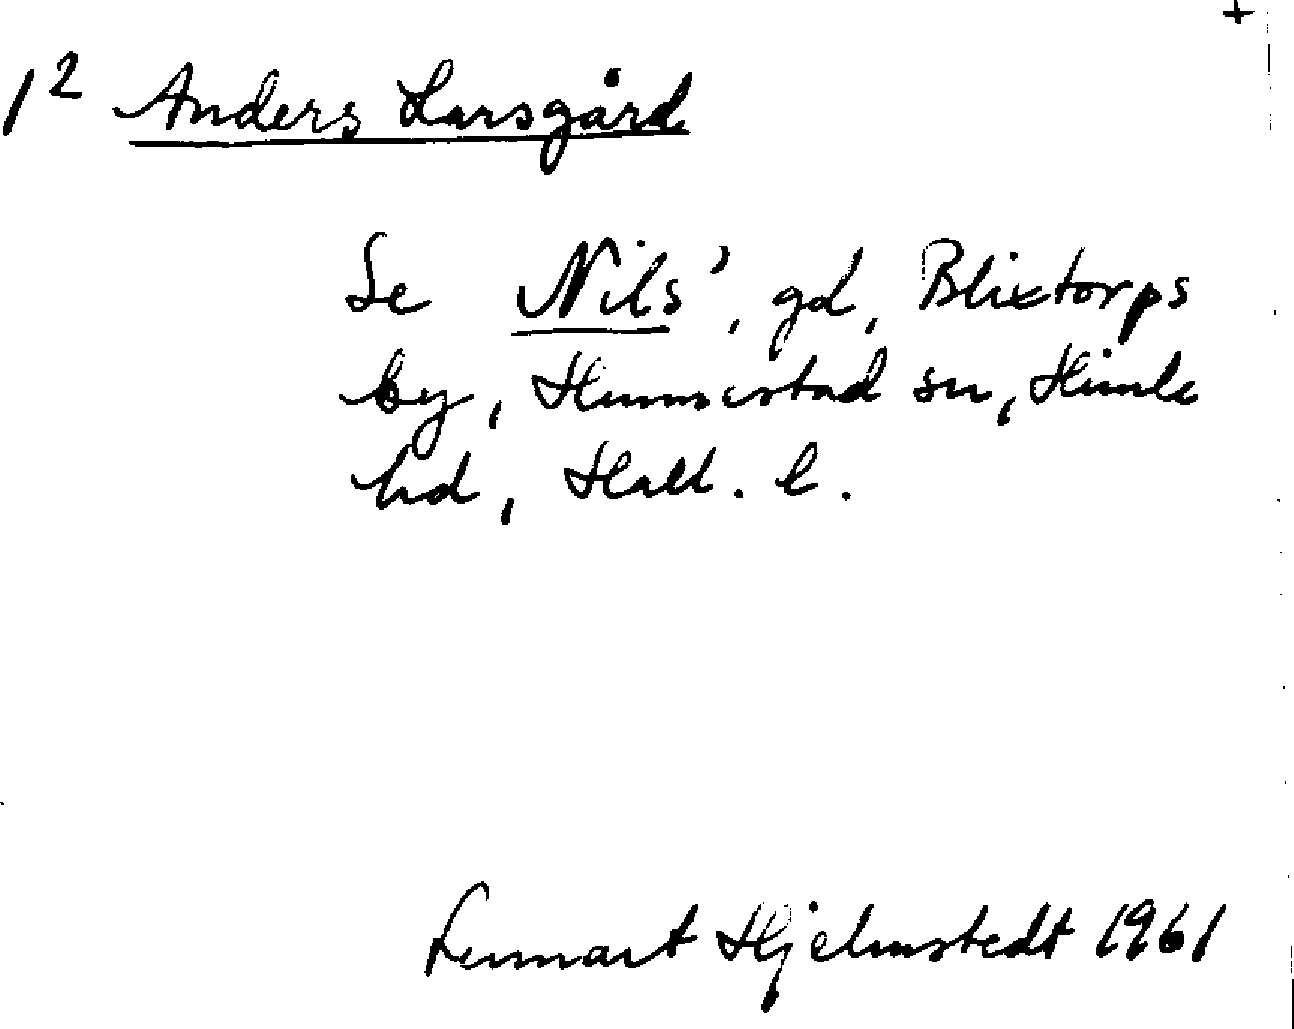 +
1² Anders Larsgård
Se Nils', gd, Blixtorps
by, Hunnestad sn, Himle
hd, Hall. l.
Lennart Hjelmstedt 1961